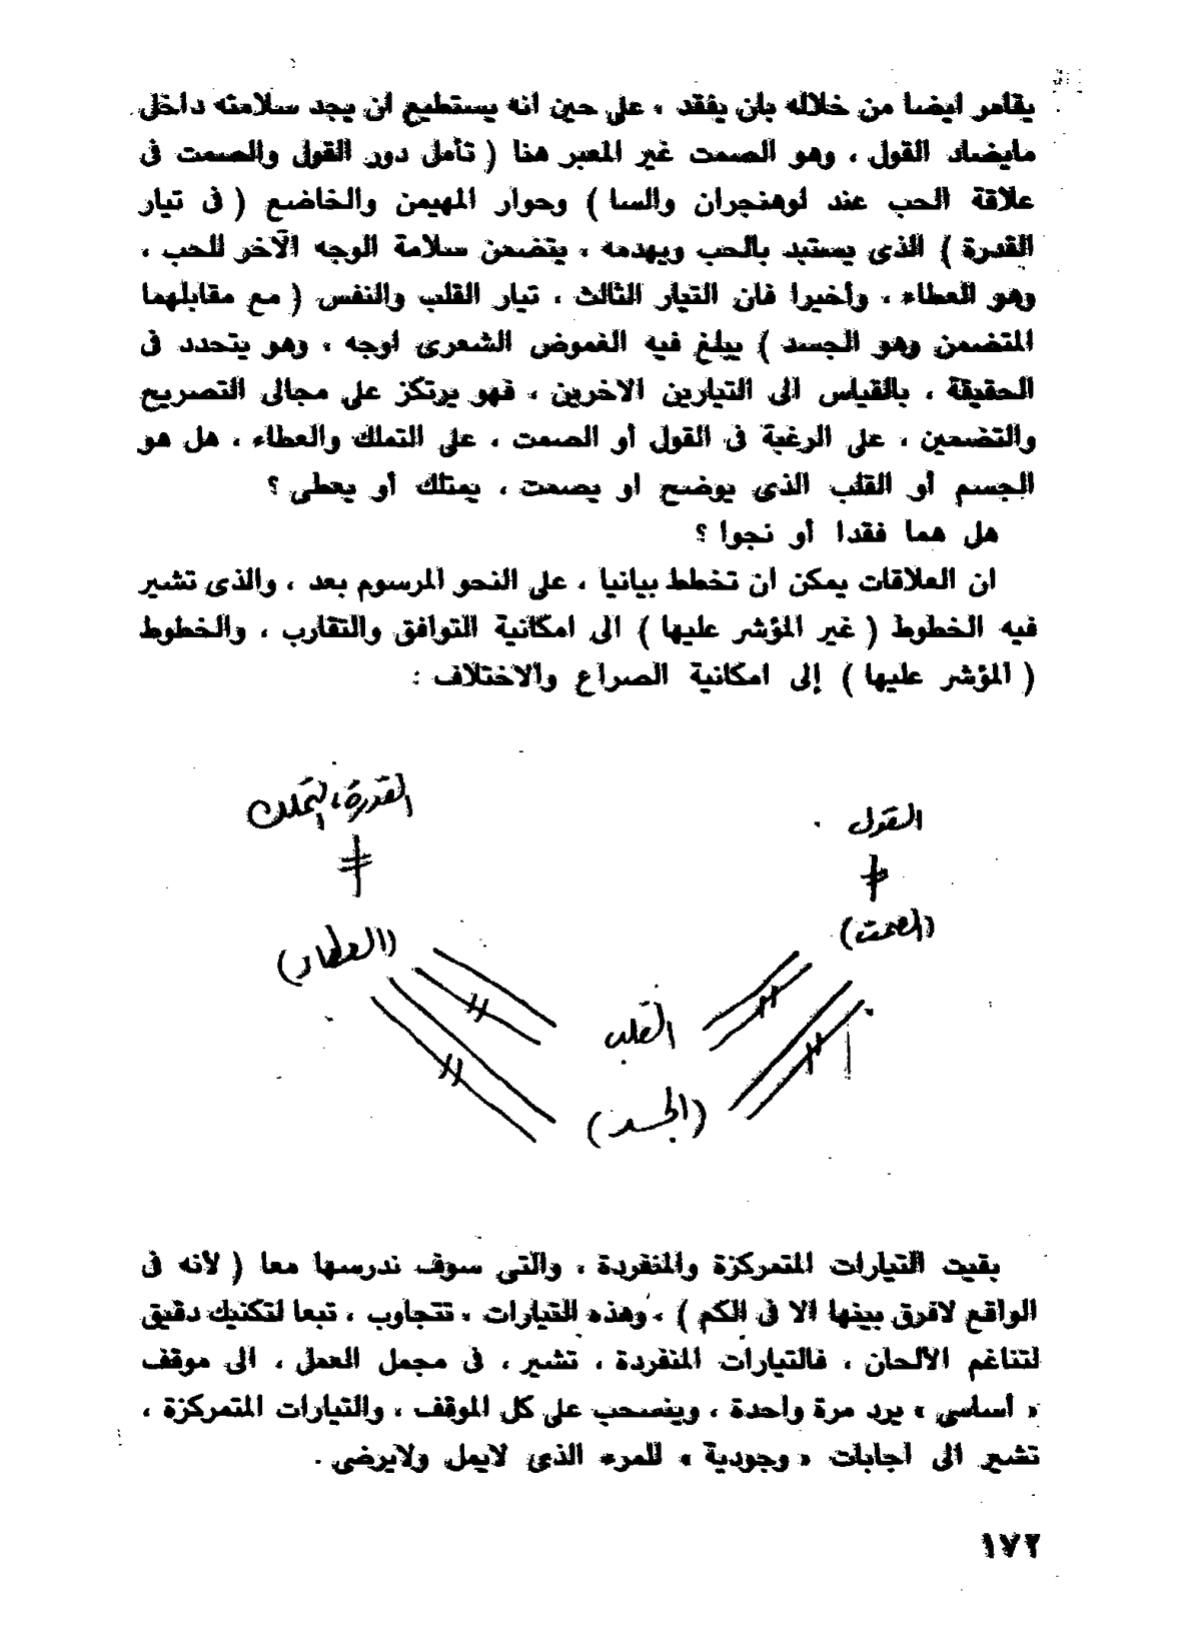 يقامر ايضا من خلاله بان يفقد ، على حين انه يستطيع ان يجد سلامته داخل
مايضاد القول ، وهو الصمت غير المعبر هنا ( تأمل دور القول والصمت فى
علاقة الحب عند لوهنجران والسا ) وحوار المهيمن والخاضع ( فى تيار
القدرة ) الذى يستبد بالحب ويهدمه ، يتضمن سلامة الوجه الآخر للحب ،
وهو العطاء ، وأخيرا فان التيار الثالث ، تيار القلب والنفس ( مع مقابلهما
المتضمن وهو الجسد ) يبلغ فيه الغموض الشعرى اوجه ، وهو يتحدد فى
الحقيقة ، بالقياس الى التيارين الاخرين ، فهو يرتكز على مجالى التصريح
والتضمين ، على الرغبة فى القول أو الصمت ، على التملك والعطاء ، هل هو
الجسم أو القلب الذى يوضح او يصمت ، يمتلك أو يعطى ؟
هل هما فقدا أو نجوا ؟
ان العلاقات يمكن ان تخطط بيانيا ، على النحو المرسوم بعد ، والذى تشير
فيه الخطوط ( غير المؤشر عليها ) الى امكانية التوافق والتقارب ، والخطوط
( المؤشر عليها ) إلى امكانية الصراع والاختلاف :
القول
القدرة، التملك
(الصمت)
(العطاء)
القلب
(الجسد)
بقيت التيارات المتمركزة والمنفردة ، والتى سوف ندرسها معا ( لانه فى
الواقع لافرق بينها الا فى الكم ) ، وهذه التيارات ، تتجاوب ، تبعا لتكنيك دقيق
لتناغم الألحان ، فالتيارات المنفردة ، تشير ، فى مجمل العمل ، الى موقف
« أساسى » يرد مرة واحدة ، وينسحب على كل الموقف ، والتيارات المتمركزة ،
تشير الى اجابات « وجودية » للمرء الذى لايمل ولايرضى .
١٧٢